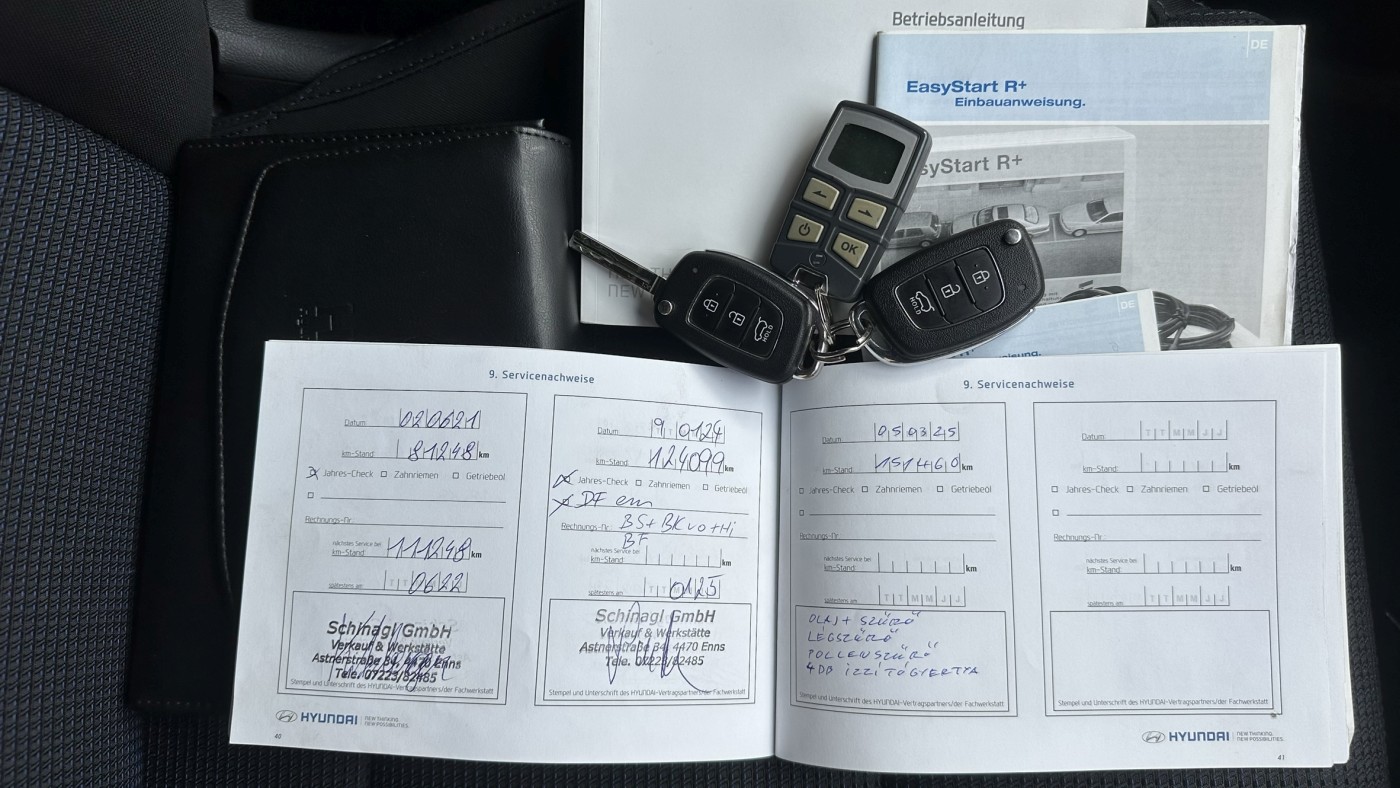 Betriebsanleitung
DE
EasyStart R+
Einbauanweisung.
syStart R+
OK
HOLD
HOLD
DE
isung.
NEW
9. Servicenachweise
Datum 020621
km-Stand 81248 km
Jahres-Check Zahnriemen Getriebeöl
Rechnungs-Nr.
nächstes Service bei
km-Stand 111248 km
spätestens am: 0622
Schinagl GmbH
Verkauf & Werkstätte
Astnerstraße 34, 4470 Enns
Tele. 07223/82485
Stempel und Unterschrift des HYUNDAI-Vertragspartners/der Fachwerkstatt
HYUNDAI NEW THINKING.
NEW POSSIBILITIES.
40
Datum: 9 0124
km-Stand: 124099 km
Jahres-Check Zahnriemen Getriebeöl
DF ern
Rechnungs-Nr.: BS+ BK vo + Hi
BF
nächstes Service bei
km-Stand: km
spätestens am: 0125
Schinagl GmbH
Verkauf & Werkstätte
Astnerstraße 34, 4470 Enns
Tele. 07223/82485
Stempel und Unterschrift des HYUNDAI-Vertragspartners/der Fachwerkstatt
9. Servicenachweise
Datum: 050325
km-Stand: 151460 km
Jahres-Check Zahnriemen Getriebeöl
Rechnungs-Nr.:
nächstes Service bei
km-Stand: km
spätestens am: T T M M J J
OLAJ + SZŰRŐ
LÉGSZŰRŐ
POLLENSZŰRŐ
4DB IZZÍTÓGYERTYA
Stempel und Unterschrift des HYUNDAI-Vertragspartners/der Fachwerkstatt
Datum: T T M M J J
km-Stand: km
Jahres-Check Zahnriemen Getriebeöl
Rechnungs-Nr.:
nächstes Service bei
km-Stand: km
spätestens am: T T M M J J
Stempel und Unterschrift des HYUNDAI-Vertragspartners/der Fachwerkstatt
HYUNDAI NEW THINKING.
NEW POSSIBILITIES.
41